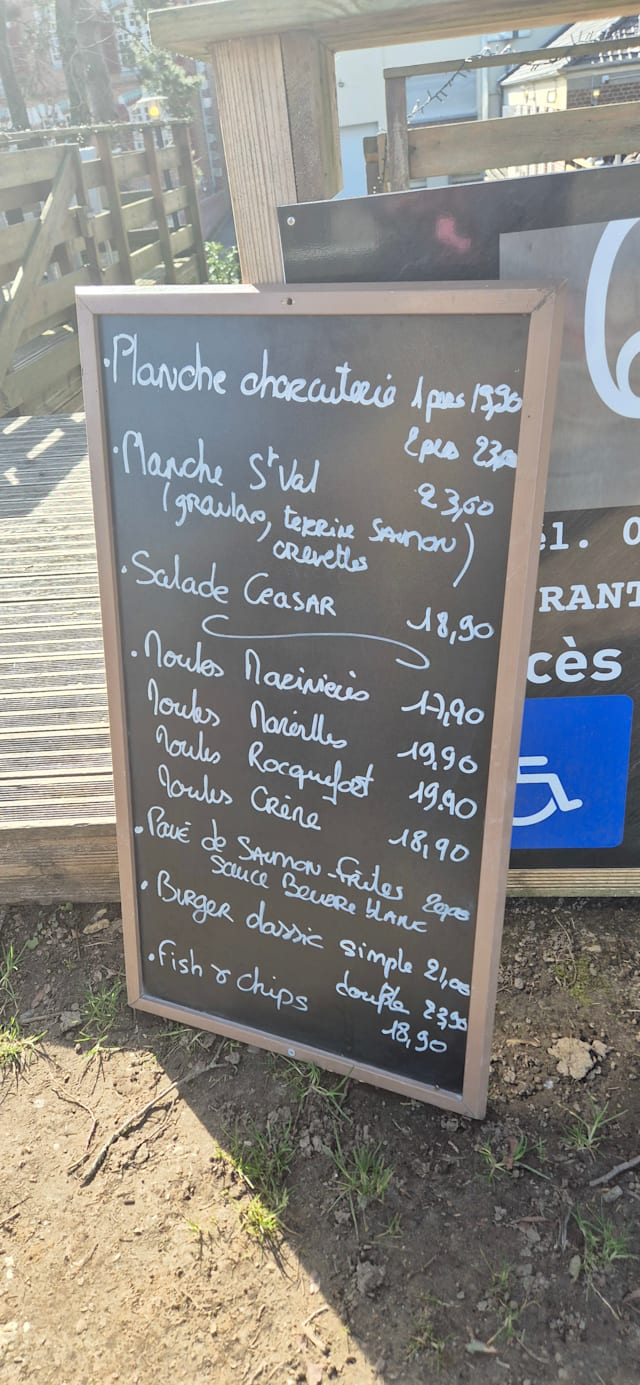 ·Planche charcuterie 1 pers 19,90
2 pers 23,00
·Planche St Val 23,00
(gravlax, terrine Saumon)
crevettes
·Salade Ceasar 18,90
·Moules Marinières 17,90
Moules Maroilles 19,90
Moules Rocquefort 19.90
Moules Crème 18,90
·Pavé de Saumon-Frites
Sauce Beurre blanc
·Burger classic simple 21,00
double 23,90
·Fish & chips 18,90
él. 0
RANT
cès